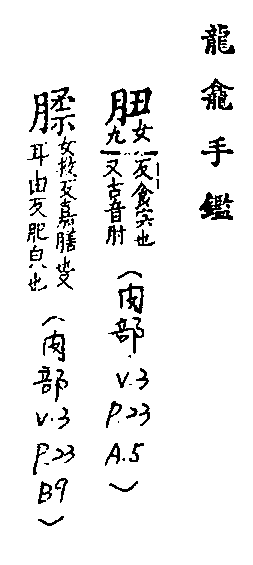 龍龕手鑑
䏔女九二反食突也又古音肘(肉部 V.3 P.23 A.5)
腬女救反嘉膳也又耳由反肥皃也(肉部 V.3 P.23 B9)